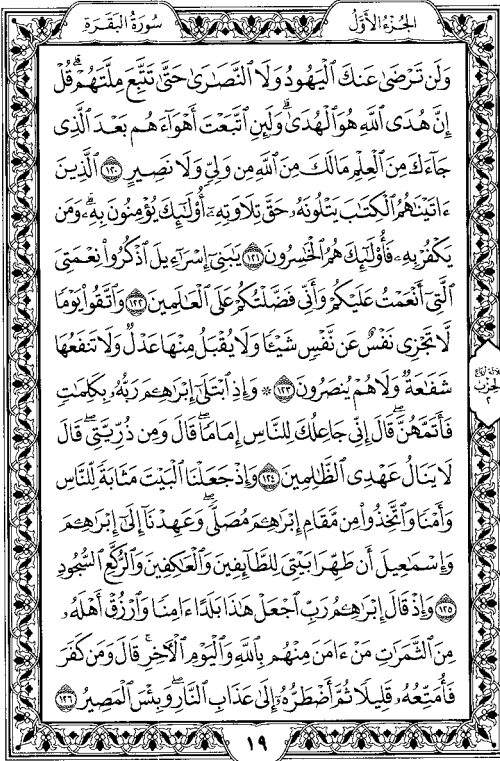 الجزء الأول
سورة البقرة
وَلَن تَرْضَىٰ عَنكَ ٱلْيَهُودُ وَلَا ٱلنَّصَٰرَىٰ حَتَّىٰ تَتَّبِعَ مِلَّتَهُمْ ۗ قُلْ
إِنَّ هُدَى ٱللَّهِ هُوَ ٱلْهُدَىٰ ۗ وَلَئِنِ ٱتَّبَعْتَ أَهْوَآءَهُم بَعْدَ ٱلَّذِى
جَآءَكَ مِنَ ٱلْعِلْمِ مَا لَكَ مِنَ ٱللَّهِ مِن وَلِىٍّ وَلَا نَصِيرٍ ١٢٠ ٱلَّذِينَ
ءَاتَيْنَٰهُمُ ٱلْكِتَٰبَ يَتْلُونَهُۥ حَقَّ تِلَاوَتِهِۦٓ أُو۟لَٰٓئِكَ يُؤْمِنُونَ بِهِۦ ۗ وَمَن
يَكْفُرْ بِهِۦ فَأُو۟لَٰٓئِكَ هُمُ ٱلْخَٰسِرُونَ ١٢١ يَٰبَنِىٓ إِسْرَٰٓءِيلَ ٱذْكُرُوا۟ نِعْمَتِىَ
ٱلَّتِىٓ أَنْعَمْتُ عَلَيْكُمْ وَأَنِّى فَضَّلْتُكُمْ عَلَى ٱلْعَٰلَمِينَ ١٢٢ وَٱتَّقُوا۟ يَوْمًا
لَّا تَجْزِى نَفْسٌ عَن نَّفْسٍ شَيْـًٔا وَلَا يُقْبَلُ مِنْهَا عَدْلٌ وَلَا تَنفَعُهَا
شَفَٰعَةٌ وَلَا هُمْ يُنصَرُونَ ١٢٣ * وَإِذِ ٱبْتَلَىٰٓ إِبْرَٰهِـۧمَ رَبُّهُۥ بِكَلِمَٰتٍ
فَأَتَمَّهُنَّ ۖ قَالَ إِنِّى جَاعِلُكَ لِلنَّاسِ إِمَامًا ۖ قَالَ وَمِن ذُرِّيَّتِى ۖ قَالَ
لَا يَنَالُ عَهْدِى ٱلظَّٰلِمِينَ ١٢٤ وَإِذْ جَعَلْنَا ٱلْبَيْتَ مَثَابَةً لِّلنَّاسِ
وَأَمْنًا وَٱتَّخِذُوا۟ مِن مَّقَامِ إِبْرَٰهِـۧمَ مُصَلًّى ۖ وَعَهِدْنَآ إِلَىٰٓ إِبْرَٰهِـۧمَ
وَإِسْمَٰعِيلَ أَن طَهِّرَا بَيْتِىَ لِلطَّآئِفِينَ وَٱلْعَٰكِفِينَ وَٱلرُّكَّعِ ٱلسُّجُودِ
١٢٥ وَإِذْ قَالَ إِبْرَٰهِـۧمُ رَبِّ ٱجْعَلْ هَٰذَا بَلَدًا ءَامِنًا وَٱرْزُقْ أَهْلَهُۥ
مِنَ ٱلثَّمَرَٰتِ مَنْ ءَامَنَ مِنْهُم بِٱللَّهِ وَٱلْيَوْمِ ٱلْـَٔاخِرِ ۖ قَالَ وَمَن كَفَرَ
فَأُمَتِّعُهُۥ قَلِيلًا ثُمَّ أَضْطَرُّهُۥٓ إِلَىٰ عَذَابِ ٱلنَّارِ ۖ وَبِئْسَ ٱلْمَصِيرُ ١٢٦
ثلاثة أرباع
الحزب
٢
١٩